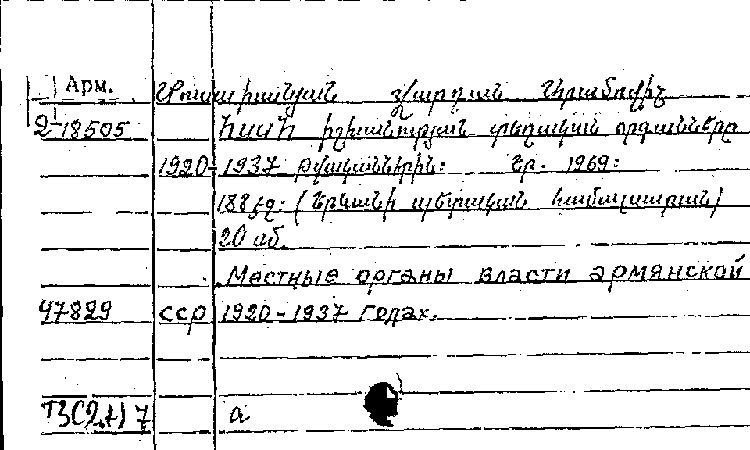 Арм.
2-18505 ՀՍՍՀ իշխանության տեղական օրգանները
1920-1937 թվականներին: Եր. 1969:
188 էջ: (Երևանի պետական համալսարան)
20 об.
Местные органы власти армянской
47829 сср 1920-1937 годах.
ТЗ(2А)7 а